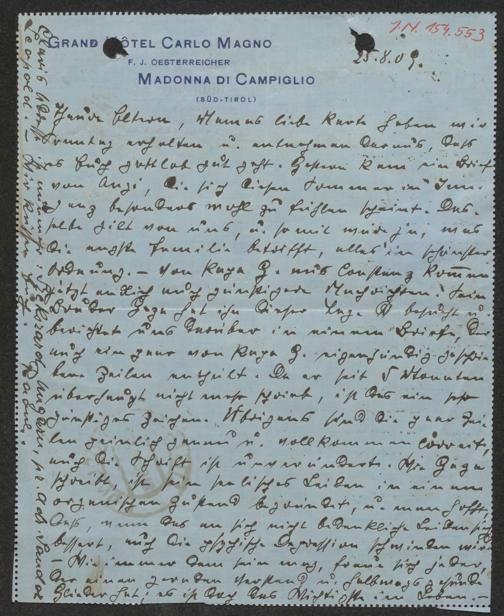 GRAND HÔTEL CARLO MAGNO
F. J. OESTERREICHER
MADONNA DI CAMPIGLIO
(SÜD-TIROL)
I.N. 154.553
25.8.09.
Theure Eltern, Mamas liebe Karte haben wir
Sonntag erhalten u. entnehmen daraus, dass
es Euch gottlob gut geht. Gestern kam ein Brief
von die sich diesen Sommer in
besonders wohl zu fühlen scheint. Das-
selbe gilt von uns, u. somit wäre ja, was
die engste Familie betrifft, alles in schönster
Ordnung. – Von Papa G. aus Constanz kommen
jetzt endlich auch günstigere Nachrichten. Sein
Bruder hat ihn dieser Tage besucht u.
berichtet uns darüber in einem Brief, der
auch ein paar von Papa G. eigenhändig geschrie-
bene Zeilen enthält. Da er seit 5 Monaten
überhaupt nicht mehr schrieb, ist das ein sehr
günstiges Zeichen. Übrigens sind die paar Zei-
len ziemlich genau u. vollkommen correct,
auch die Schrift ist unverändert. Wie
schreibt, ist sein seelisches Leiden in einem
organischen Zustand begründet, u. man hofft,
dass, wenn das an sich nicht bedenkliche Leiden sich
bessert, auch die psychische Depression schwinden wird.
– Wie immer dem sein mag, freue sich jeder,
der einen geraden Verstand u. halbwegs gesunde
Glieder hat; es ist doch das Wichtigste im Leben. –